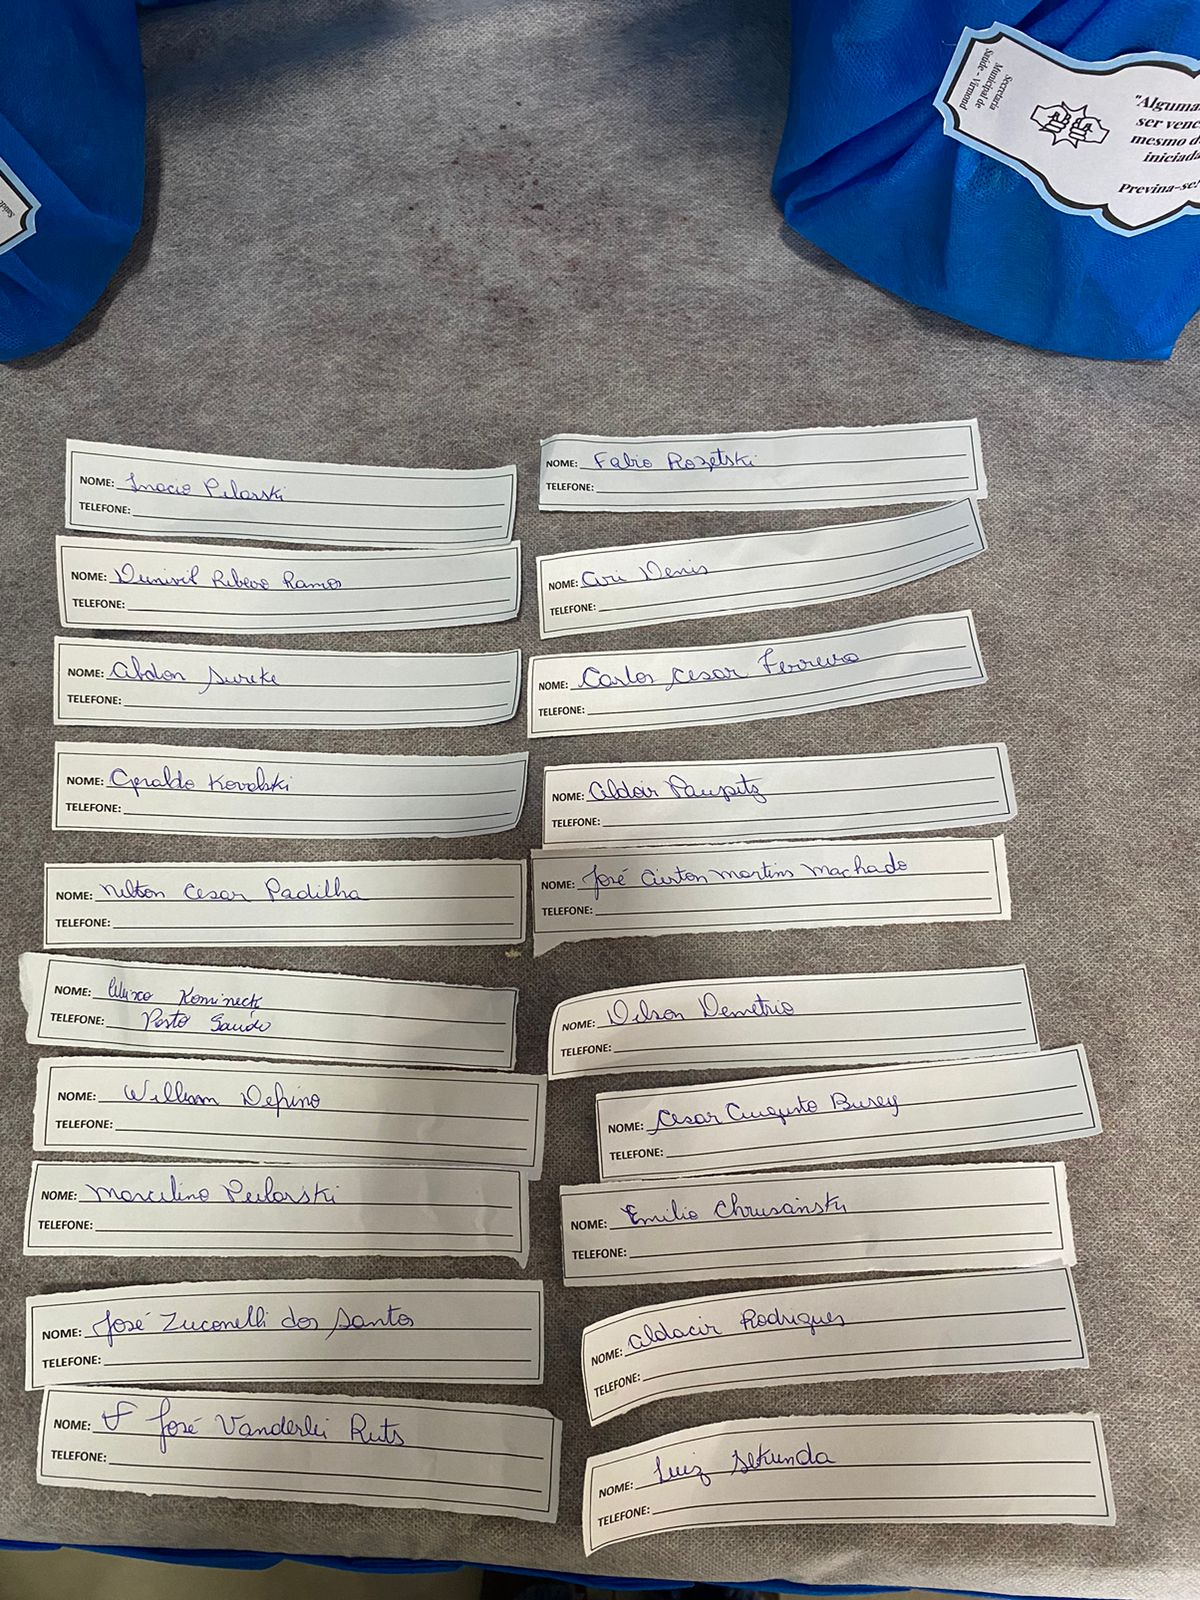 Secretaria
Municipal de
Saúde - Virmond
"Alguma
ser venc
mesmo d
iniciada
Previna-se!
Saúde
NOME: Inacio Pilarski
TELEFONE:
NOME: Ribeiro Ramos
TELEFONE:
NOME: Abdon Sureke
TELEFONE:
NOME: Geraldo Kovalski
TELEFONE:
NOME: Nilton Cesar Padilha
TELEFONE:
NOME: Komineck
TELEFONE: Posto Saúde
NOME: William Defino
TELEFONE:
NOME: Marcelino Pilarski
TELEFONE:
NOME: José Zuconelli dos Santos
TELEFONE:
NOME: José Vanderlei Ruts
TELEFONE:
NOME: Fabio Rozetski
TELEFONE:
NOME: Ari Denis
TELEFONE:
NOME: Carlos Cesar Ferreira
TELEFONE:
NOME: Aldair Paupitz
TELEFONE:
NOME: José Airton Martins Machado
TELEFONE:
NOME: Dilson Demetrio
TELEFONE:
NOME: Cesar Augusto Burey
TELEFONE:
NOME: Emilio Chrusinski
TELEFONE:
NOME: Aldacir Rodrigues
TELEFONE:
NOME: Luiz Sekunda
TELEFONE: